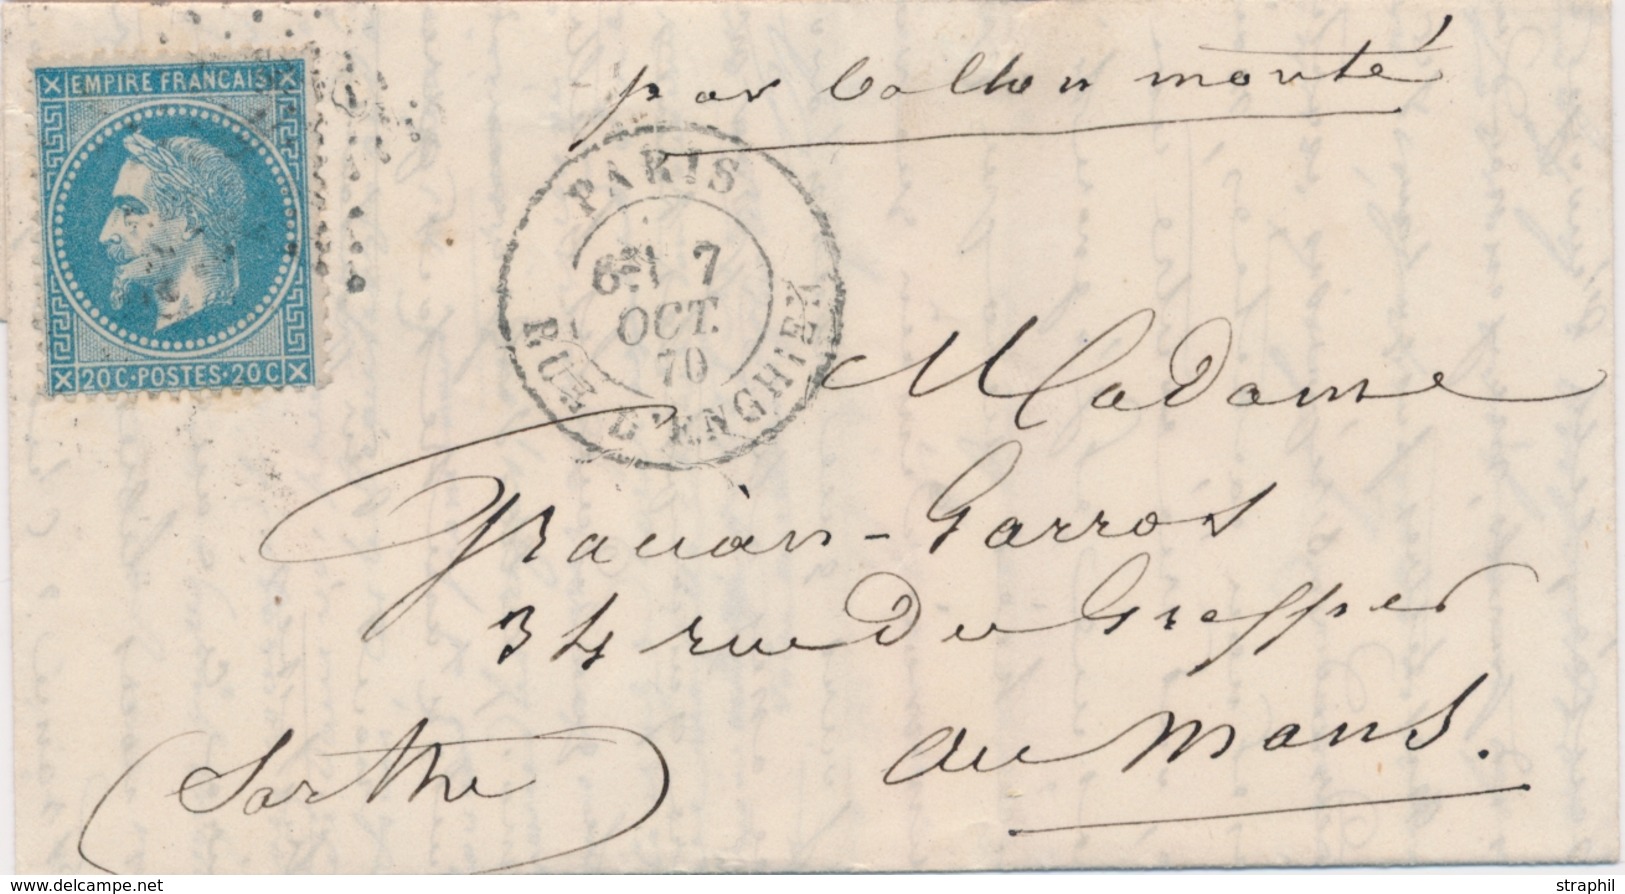 EMPIRE FRANCAIS
20C·POSTES·20C
par ballon monté
PARIS
7
OCT.
70
RUE D'ENGHIEN
Madame
Gracian-Garros
34 rue du Greffier
au Mans.
Sarthe
www.delcampe.net
straphil